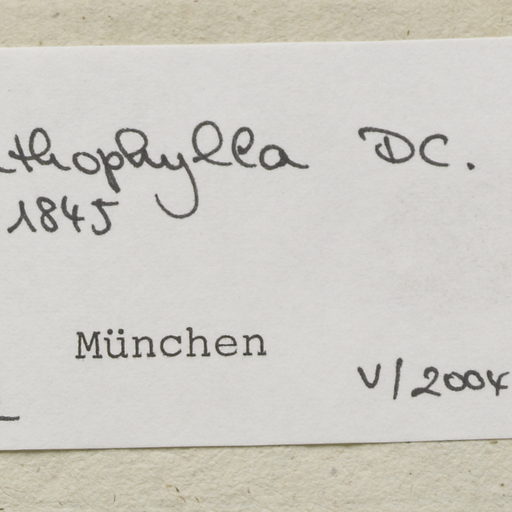 thophylla DC.
1845
München
V/2004